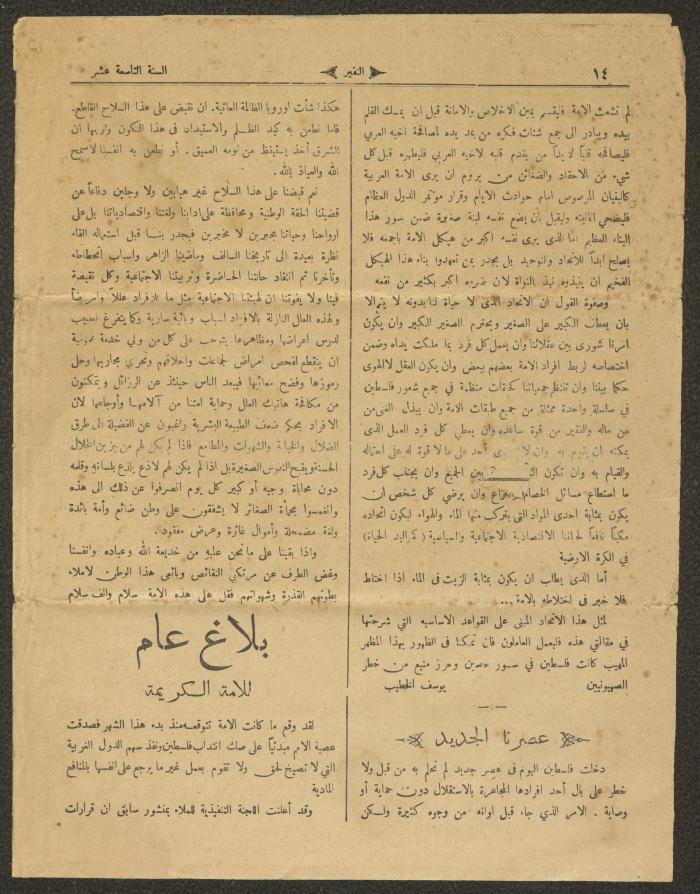 ١٤
النفير
السنة التاسعة عشر
لم تشعث الامة فليقسم يمين الاخلاص والامانة قبل ان يمسك القلم
بيده ويبادر الى جمع شتات فكره من يمد يده لمصافحة اخيه العربي
فليصافحه قلباً لا يداً من يقدم قلبه لاخيه العربي فليطهره قبل كل
شيء من الاحقاد والضغائن من يروم ان يرى الامة العربية
كالبنيان المرصوص امام حوادث الايام وقرار مؤتمر الدول العظام
فليضحي انانيته وليقبل بأن يضع نفسه لبنة صغيرة ضمن سور هذا
البناء العظيم اما الذى يرى نفسه اكبر من هيكل الامة باجمعه فلا
يصلح ابداً للاتحاد والتوحيد بل يجدر بمن تعهدوا بناء هذا الهيكل
الفخيم ان ينبذوه نبذ النواة لان ضرره اكبر بكثير من نفعه
وصفوة القول ان الاتحاد الذى لا حياة لنا بدونه لا يتم الا
بان يعطف الكبير على الصغير ويحترم الصغير الكبير وان يكون
امرنا شورى بين عقلائنا وان يعمل كل فرد بما ملكت يداه وضمن
اختصاصه لربط افراد الامة بعضهم ببعض وان يكون العقل لا الهوى
حكما بيننا وان تنتظم جمعياتنا كحلقات منظمة في جميع ثغور فلسطين
في سلسلة واحدة ممثلة من جميع طبقات الامة وان يبذل الغني من
من ماله والفقير من قوة ساعده وان يعمل كل فرد العمل الذى
يمكنه ان يقوم به وان لا أحد على ما لا قوة له على احتماله
والقيام به وان تكون بين الجميع وان يجتنب كل فرد
ما استطاع مسائل الخصام والنزاع وان يرضي كل شخص ان
يكون بمثابة احدى المواد التى يتركب منها الماء والهواء ليكون اتحاده
مكيناً نافعاً لحياتنا الاقتصادية الاجتماعية والسياسية (كمواليد الحياة)
في الكرة الارضية
أما الذى يطلب ان يكون بمثابة الزيت فى الماء اذا اختلط
فلا خير فى اختلاطه بالامة ...
لمثل هذا الاتحاد المبنى على القواعد الاساسيه التي شرحتها
في مقالتي هذه فليعمل العاملون فان تمكنا فى الظهور بهذا المظهر
المهيب كانت فلسطين في سور حصين وحرز منيع من خطر
الصهيونيين يوسف الخطيب
عصرنا الجديد
دخلت فلسطين اليوم فى عصر جديد لم تحلم به من قبل ولا
خطر على بال أحد افرادها المجاهرة بالاستقلال دون حماية أو
وصاية . الامر الذي جاء قبل اوانه من وجوه كثيرة ولكن
هكذا شأت اوروبا الظالمة العاتية. ان نقبض على هذا السلاح القاطع.
فاما نطعن به كبد الظلم والاستبداد فى هذا الكون ونريها ان
الشرق أخذ يستيقظ من نومه العميق . أو نطعن به انفسنا لاسمح
الله والعياذ بالله .
نعم قبضنا على هذا السلاح غير هيابين ولا وجلين دفاعاً عن
قضيتنا الحقة الوطنية ومحافظة على ادابنا ولغتنا واقتصادياتنا بل على
ارواحنا وحياتنا مجبرين لا مخيرين فيجدر بنا قبل استعماله القاء
نظرة بعيدة الى تاريخنا السالف وماضينا الزاهر واسباب انحطاطه
وتأخرنا ثم انتقاد حالتنا الحاضرة وتربيتنا الاجتماعية وكل نقيصة
فينا ولا يفوتنا ان لهيئتنا الاجتماعية مثل ما للافراد عللا وأمراضاً
ولهذه العلل النازلة بالافراد اسباب وبائية سارية وكما يتفرغ الطبيب
لدرس اعراضها ومظاهرها يتوجب على كل من ولي خدمة عمومية
ان ينقطع لفحص امراض الجماعات واخلاقهم وتحري مجاريها وحل
رموزها وفضح معائبها فيبعد الناس حينئذ عن الرذائل ويتمكنون
من مكافحة هاتيك العلل وحماية امتنا من آلامهما وأوجاعها لان
الافراد بحكم ضعف الطبيعة البشرية راغبون عن الفضيلة الى طرق
الضلال والخيانة والشهوات والمطامع فاذا لم يكن لهم من يزين الخلال
الحسنة ويقبح النفوس الصغيرة بل اذا لم يكن لهم لاذع يلذع بلسانه وقلمه
دون محاباة وجيه أو كبير كل يوم انصرفوا عن ذلك الى هذه
وانغمسوا بحمأة الصغائر لا يشفقون على وطن ضائع وأمة بائدة
ولغة مضمحلة وأموال غائرة وعرض مفقود .
واذا بقينا على ما نحن عليه من خديعة الله وعباده وانفسنا
وغض الطرف عن مرتكبي النقائص وبائعى هذا الوطن لاملاء
بطونهم القذرة وشهواتهم فقل على هذه الامة سلام والف سلام
بلاغ عام
للامة الكريمة
لقد وقع ما كانت الامة تتوقعه منذ بدء هذا الشهر فصدقت
عصبة الامم مبدئياً على صك انتداب فلسطين ونفذ سهم الدول الغربية
التي لا تصيخ لحق ولا تقوم بعمل غير ما يرجع على انفسها بالمنافع
المادية
وقد أعلنت اللجنة التنفيذية للملاء بمنشور سابق ان قرارات